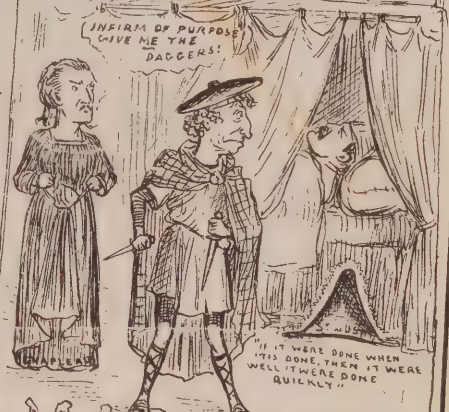 INFIRM OF PURPOSE
GIVE ME THE
DAGGERS!
"IF IT WERE DONE WHEN
'TIS DONE, THEN IT WERE
WELL IT WERE DONE
QUICKLY"